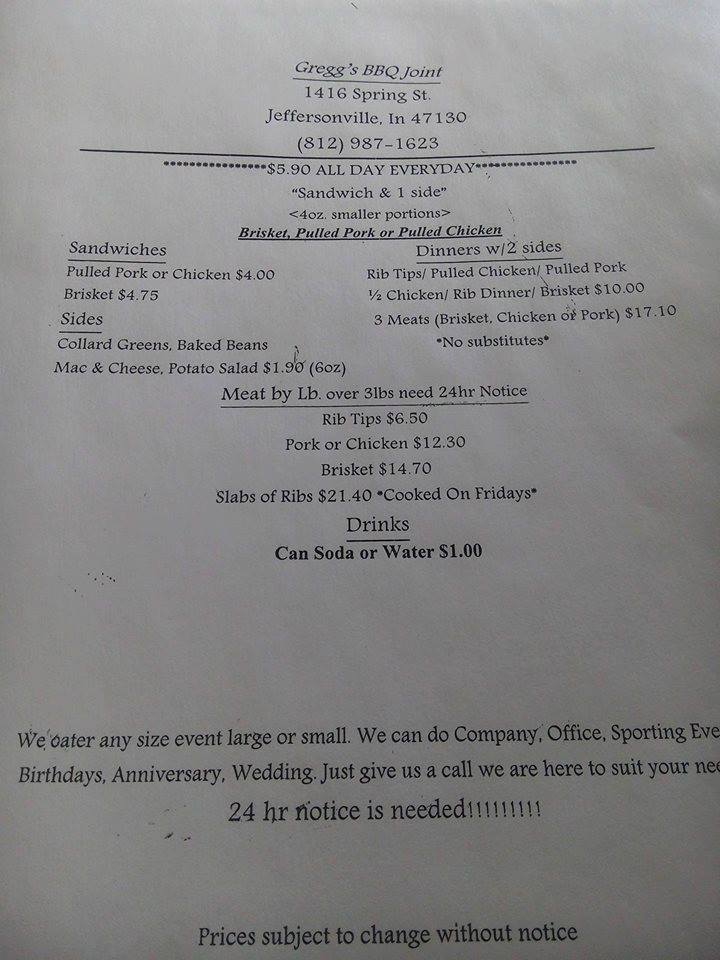 Gregg's BBQ Joint
1416 Spring St.
Jeffersonville, In 47130
(812) 987-1623
****************$5.90 ALL DAY EVERYDAY****************
"Sandwich & 1 side"
<4oz. smaller portions>
Brisket, Pulled Pork or Pulled Chicken
Sandwiches
Pulled Pork or Chicken $4.00
Brisket $4.75
Sides
Collard Greens, Baked Beans
Mac & Cheese, Potato Salad $1.90 (6oz)
Dinners w/2 sides
Rib Tips/ Pulled Chicken/ Pulled Pork
½ Chicken/ Rib Dinner/ Brisket $10.00
3 Meats (Brisket, Chicken or Pork) $17.10
*No substitutes*
Meat by Lb. over 3lbs need 24hr Notice
Rib Tips $6.50
Pork or Chicken $12.30
Brisket $14.70
Slabs of Ribs $21.40 *Cooked On Fridays*
Drinks
Can Soda or Water $1.00
We cater any size event large or small. We can do Company, Office, Sporting Eve
Birthdays, Anniversary, Wedding. Just give us a call we are here to suit your nee
24 hr notice is needed!!!!!!!!!
Prices subject to change without notice